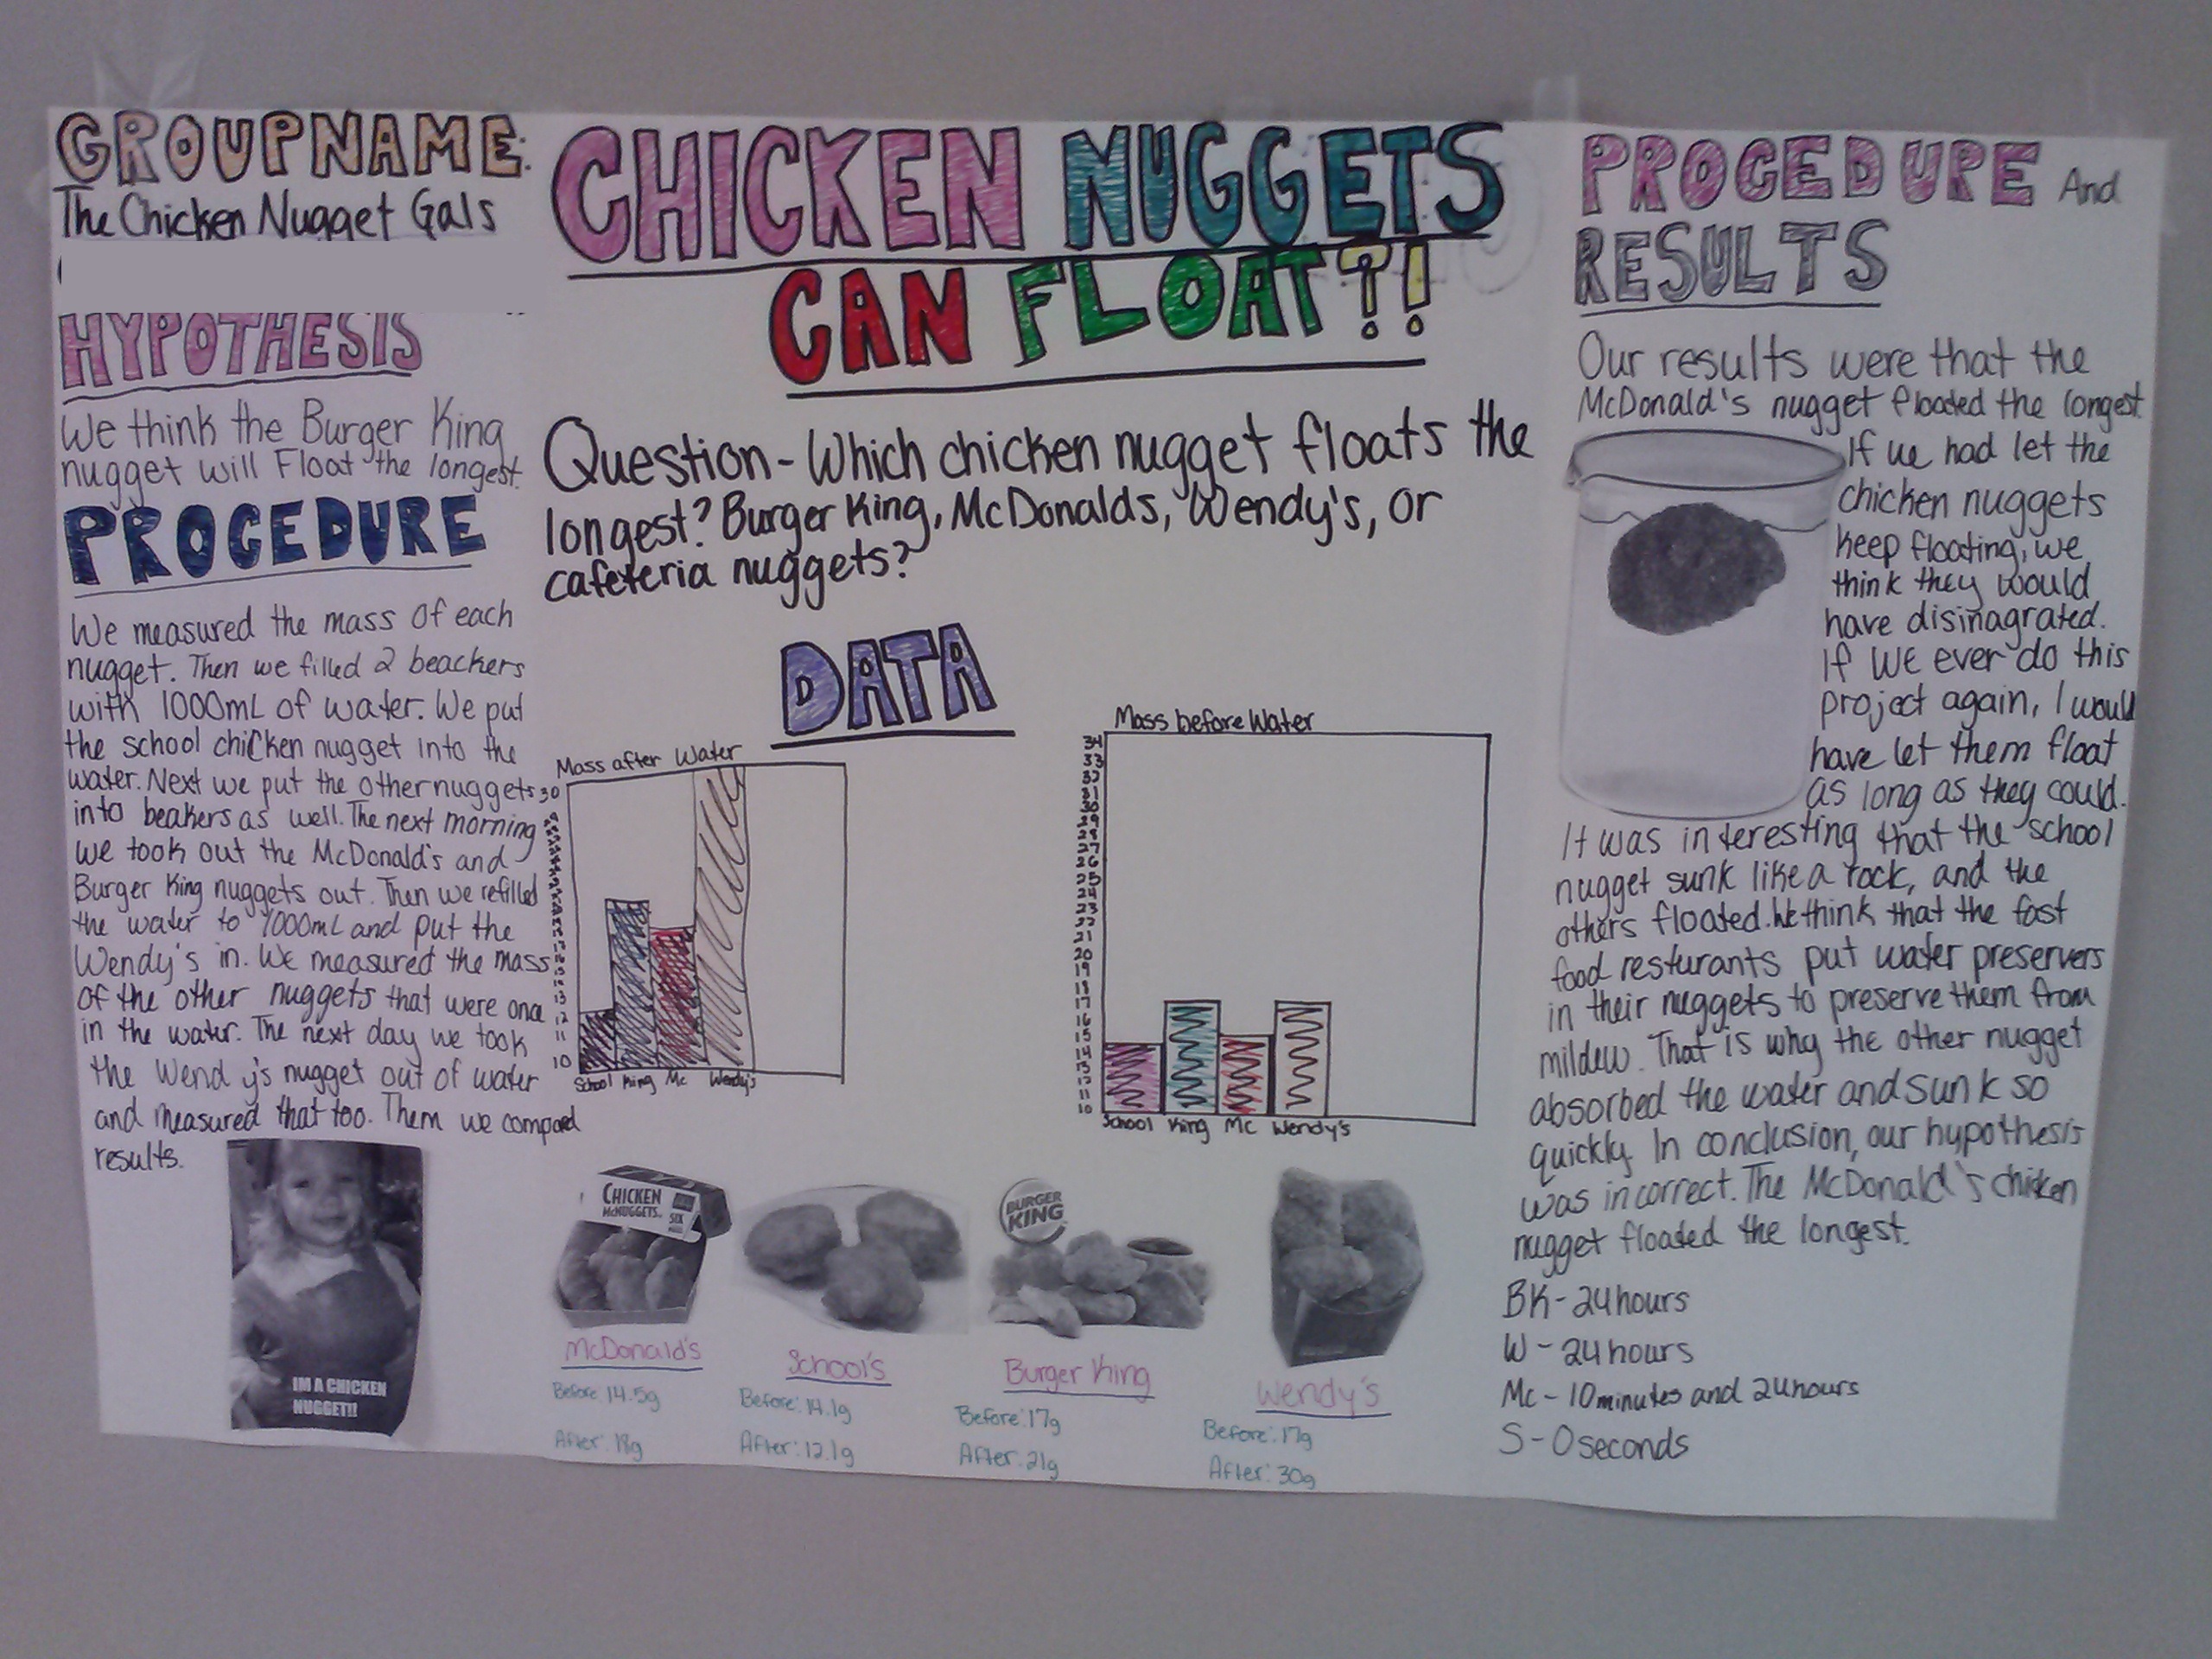 GROUPNAME:
The Chicken Nugget Gals
HYPOTHESIS
We think the Burger King
nugget will Float the longest.
PROCEDURE
We measured the mass of each
nugget. Then we filled 2 beackers
with 1000mL of water. We put
the school chicken nugget into the
water. Next we put the other nuggets
into beakers as well. The next morning
we took out the McDonald's and
Burger King nuggets out. Then we refilled
the water to 1000mL and put the
Wendy's in. We measured the mass
of the other nuggets that were once
in the water. The next day we took
the Wendy's nugget out of water
and measured that too. Them we
results.
IM A CHICKEN
NUGGET!!
CHICKEN NUGGETS
CAN FLOAT?!
Question - Which chicken nugget floats the
longest? Burger King, McDonalds, Wendy's, or
cafeteria nuggets?
DATA
Mass after Water
30
13
12
11
10
School King Mc Wendy's
Mass before Water
34
33
32
31
30
29
28
27
26
25
24
23
22
21
20
19
18
17
16
15
14
13
12
11
10
School King Mc Wendy's
CHICKEN
McNUGGETS
SIX
McDonald's
Before 14.5g
After: 18g
School's
Before: 14.1g
After: 12.1g
BURGER
KING
Burger King
Before: 17g
After: 21g
Wendy's
Before: 17g
After: 30g
PROCEDURE And
RESULTS
Our results were that the
McDonald's nugget floaded the longest.
If we had let the
chicken nuggets
keep floating, we
think they would
have disinagrated.
If we ever do this
project again, I would
have let them float
as long as they could.
It was interesting that the school
nugget sunk like a rock, and the
others floated. We think that the fast
food resturants put water preservers
in their nuggets to preserve them from
mildew. That is why the other nugget
absorbed the water and sunk so
quickly. In conclusion, our hypothesis
was incorrect. The McDonald's chicken
nugget floaded the longest.
BK - 24 hours
W - 24 hours
Mc - 10 minutes and 24 hours
S - 0 seconds